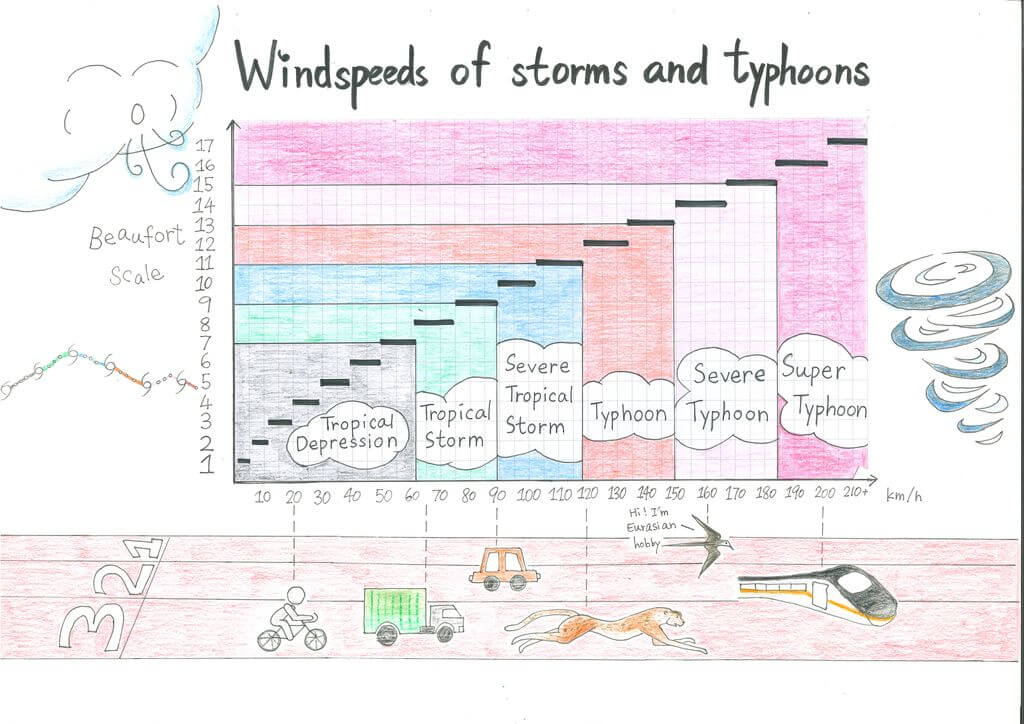 Windspeeds of storms and typhoons
17
16
15
14
13
12
11
10
9
8
7
6
5
4
3
2
1
Beaufort
Scale
Tropical
Depression
Tropical
Storm
Severe
Tropical
Storm
Typhoon
Severe
Typhoon
Super
Typhoon
10 20 30 40 50 60 70 80 90 100 110 120 130 140 150 160 170 180 190 200 210+ km/h
Hi! I'm
Eurasian
hobby
1
2
3